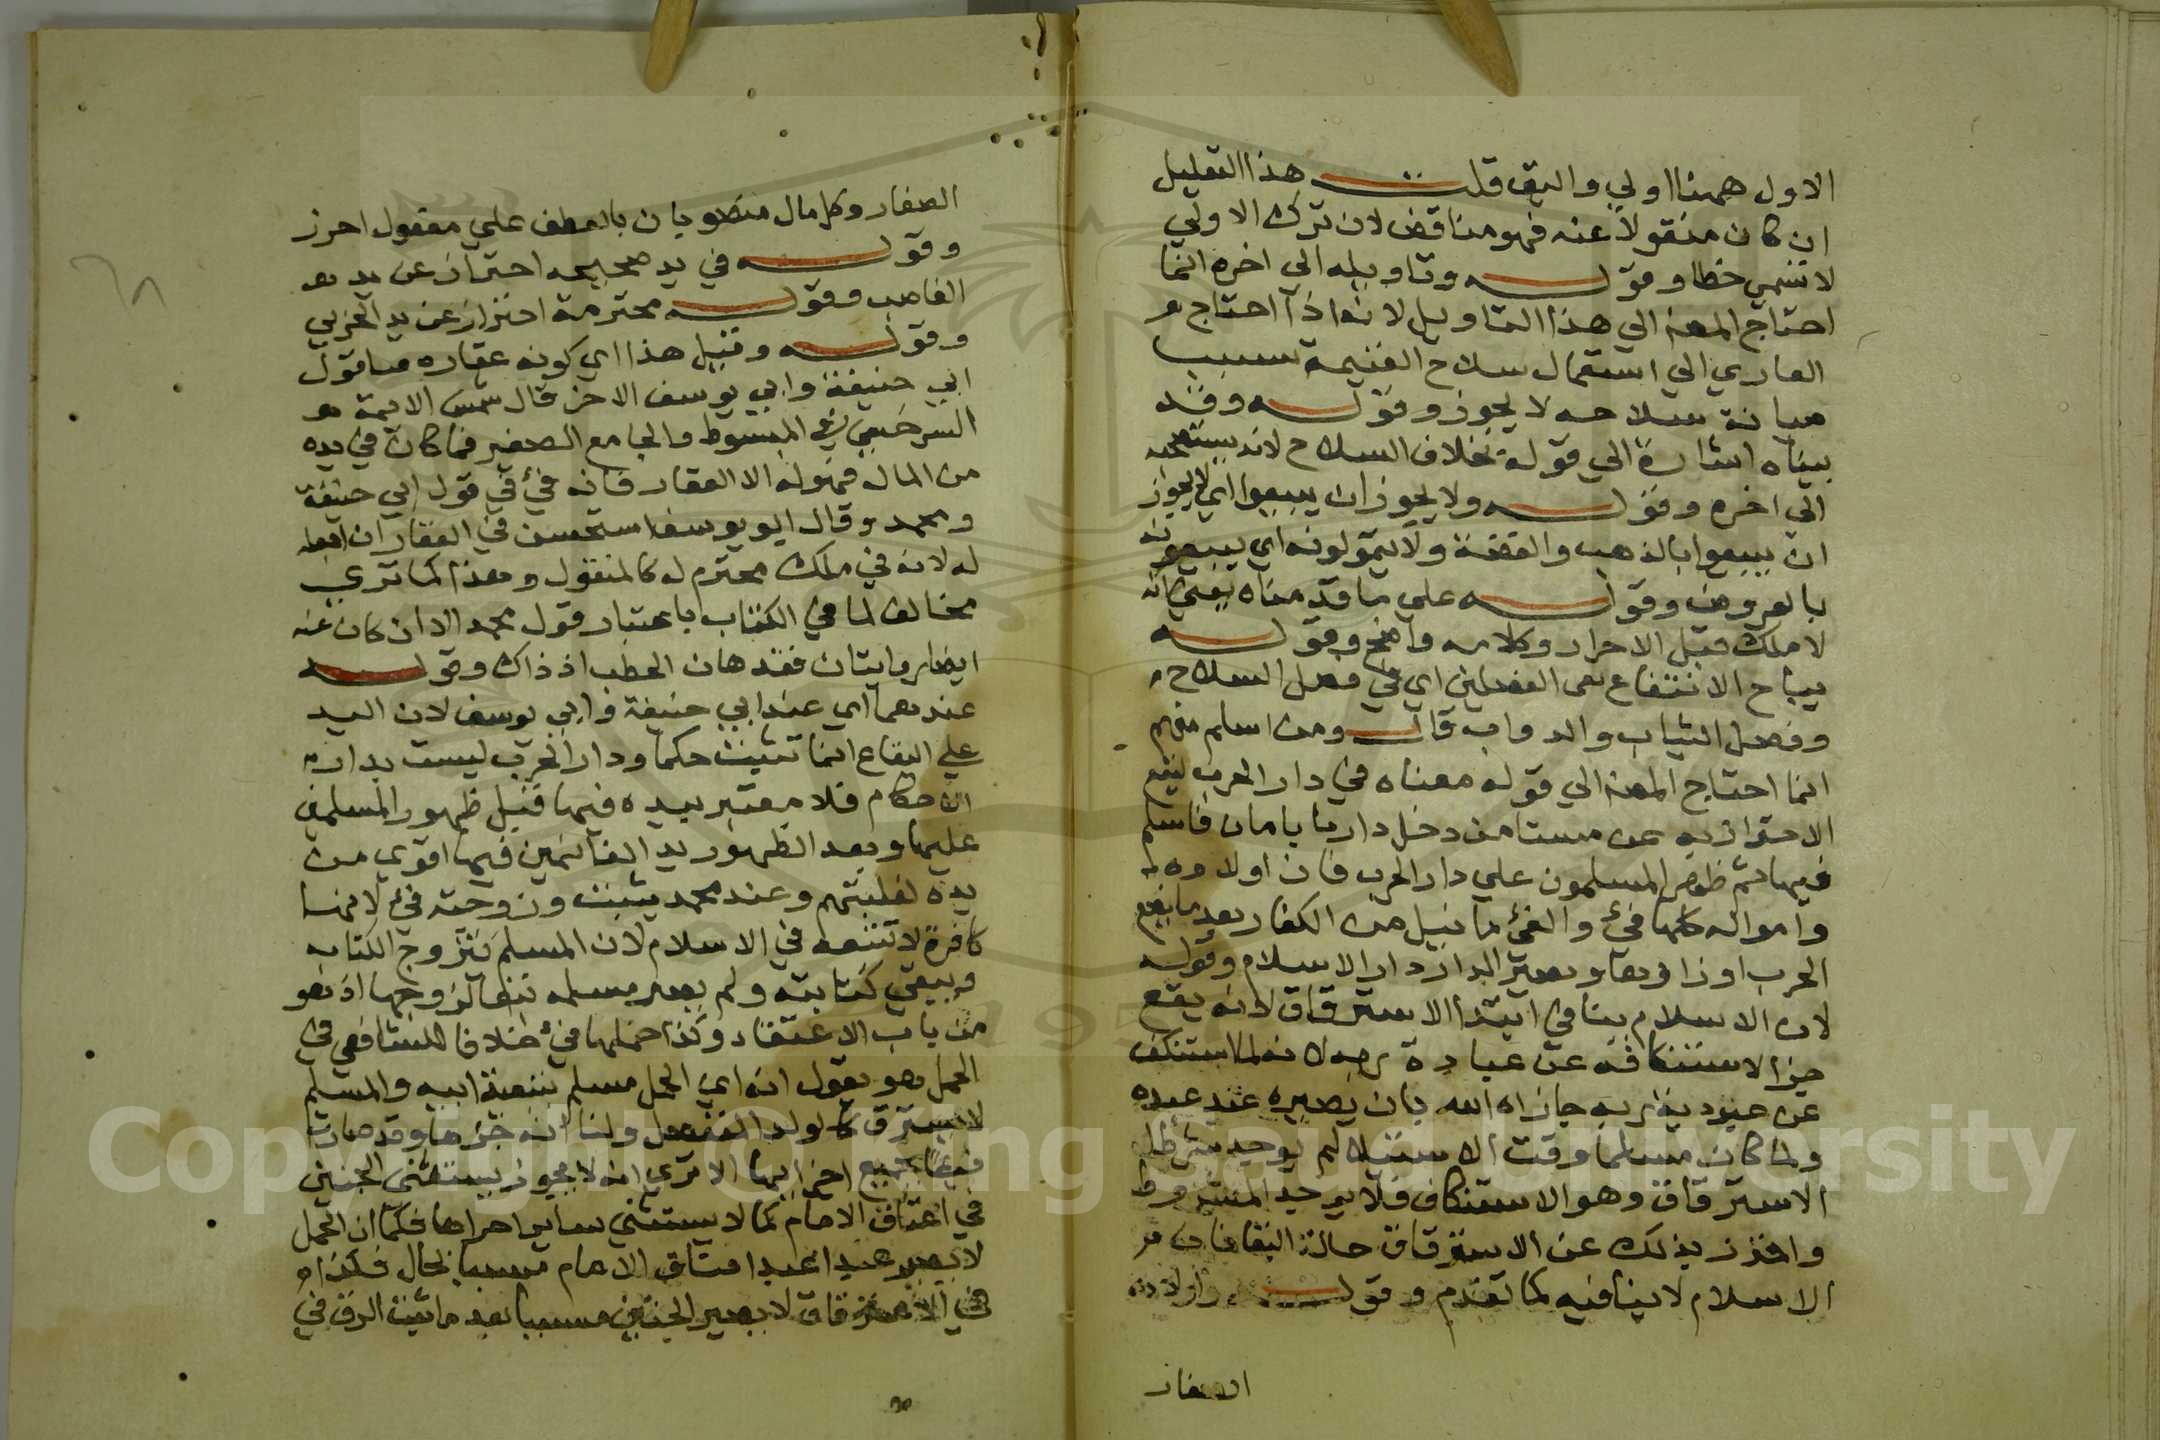 الاول ههنا اولي واليق قلت هذا التعليل
ان كان منقولا عنه فهو مناقض لان ترك الاولي
لا تسمي خطا وقوله وتاويله الي اخره انما
احتاج المص الي هذا التاويل لانه اذا احتاج
الغازي الي استعمال سلاح الغنيمة بسبب
صيانة سلاحه لا يجوز وقوله وقد
بيناه اشارة الي قوله بخلاف السلاح لانه يستصحبه
الي اخره وقوله ولا يجوز ان يبيعوا اي لا يجوز
ان يبيعوا بالذهب والفضة ولا يتمولونه اي يبيعونه
بالعروض وقوله علي ما قدمناه يعني انه
لا ملك قبل الاحراز وكلامه واضح وقوله
يباح الانتفاع في الفصلين اي في فصل السلاح
وفصل الثياب والدواب قال ومن اسلم منهم
انما احتاج المص الي قوله معناه في دار الحرب ليقع
الاحتراز به عن مستامن دخل دارنا بامان فاسلم
فيها ثم ظهر المسلمون علي دار الحرب فان اولاده
وامواله كلها فيء والفيء ما نيل من الكفار بعد ما تضع
الحرب اوزارها وتصير الدار دار الاسلام وقوله
لان الاسلام ينافي ابتدا الاسترقاق لانه يقع
جزا لاستنكافه عن عبادة ربه لانه لما استنكف
عن عبودية ربه جازاه الله بان يصيره عند عبده
ولما كان مسلما وقت الاستيلا لم يوجد شرط
الاسترقاق وهو الاستنكاف فلا يوجد المشروط
واحترز بذلك عن الاسترقاق حالة البقا فان
الاسلام لا ينافيه كما تقدم وقوله واولاده
الصغار
الصغار وكل مال منصوبان بالعطف علي مفعول احرز
وقوله في يد صحيحه احتراز عن يد
الغاصب وقوله محترمة احتراز عن يد الحربي
وقوله وقيل هذا اي كونه عقاره فيا قول
ابي حنيفة وابي يوسف الاخر قال شمس الايمة
السرخسي في المبسوط والجامع الصغير فما كان في يده
من المال فهو له الا العقار فانه فيء في قول ابي حنيفة
ومحمد وقال ابو يوسف استحسن في العقار ان اجعله
له لانه في ملك محترم له كالمنقول وهذا كما تري
مخالف لما في الكتاب باعتبار قول محمد الا ان كان عنه
ايضا روايتان فقد هان الخطب اذ ذاك وقوله
عندهما اي عند ابي حنيفة وابي يوسف لان اليد
علي البقاع انما تثبت حكما ودار الحرب ليست بدار
الاحكام فلا معتبر بيده فيها قبل ظهور المسلمين
عليها وبعد الظهور يد الغانمين فيها اقوي من
يده لغلبتهم وعند محمد يثبت وزوجته فيء لانها
كافرة لا تتبعه في الاسلام لان المسلم يتزوج الكتابه
ويبقي كتابية ولم يصير مسلمه تبعا لزوجها اذ هو
من باب الاعتقاد وكذا حملها فيء خلافا للشافعي في
الحمل وهو يقول انه اي الحمل مسلم تبعية ابيه والمسلم
لا يسترق كالولد المنفصل ولنا انه جزوها وقد صارت
فيئا بجميع اجزايها الا تري انه لا يجوز يستثني الجنين
في اعتاق الامام كما لا يستثني ساير اجزاها فكما ان الحمل
لا يصير عبدا اعتاق الامام بحال فكذا
في الاسترقاق لا يصير الجنين مسبيا بعد ما ثبت الرق في